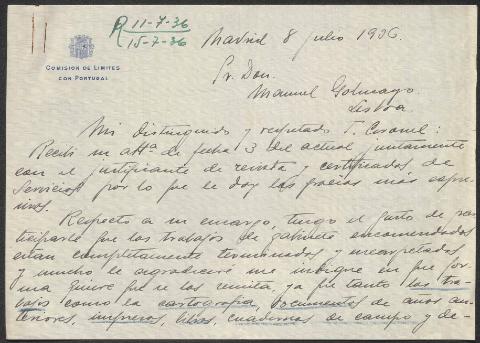 R 11-7-36
15-7-36
Madrid 8 julio 1936.
COMISION DE LIMITES
CON PORTUGAL
Sr. Don
Manuel Golmayo
Lisboa
Mi distinguido y respetado T. Coronel:
Recibí su attª de fecha 3 del actual juntamente
con el justificante de revista y certificados de
Servicios por lo que le doy las gracias más expre-
sivas.
Respecto a su encargo, tengo el gusto de par-
ticiparle que los trabajos de gabinete encomendados
estan completamente terminados y
y mucho le agradeceré me indique en que for-
ma quiere que se los remita, ya que tanto los tra-
bajos como la cartografía, documentos de años an-
teriores, impresos, libros, cuadernos de campo y de-